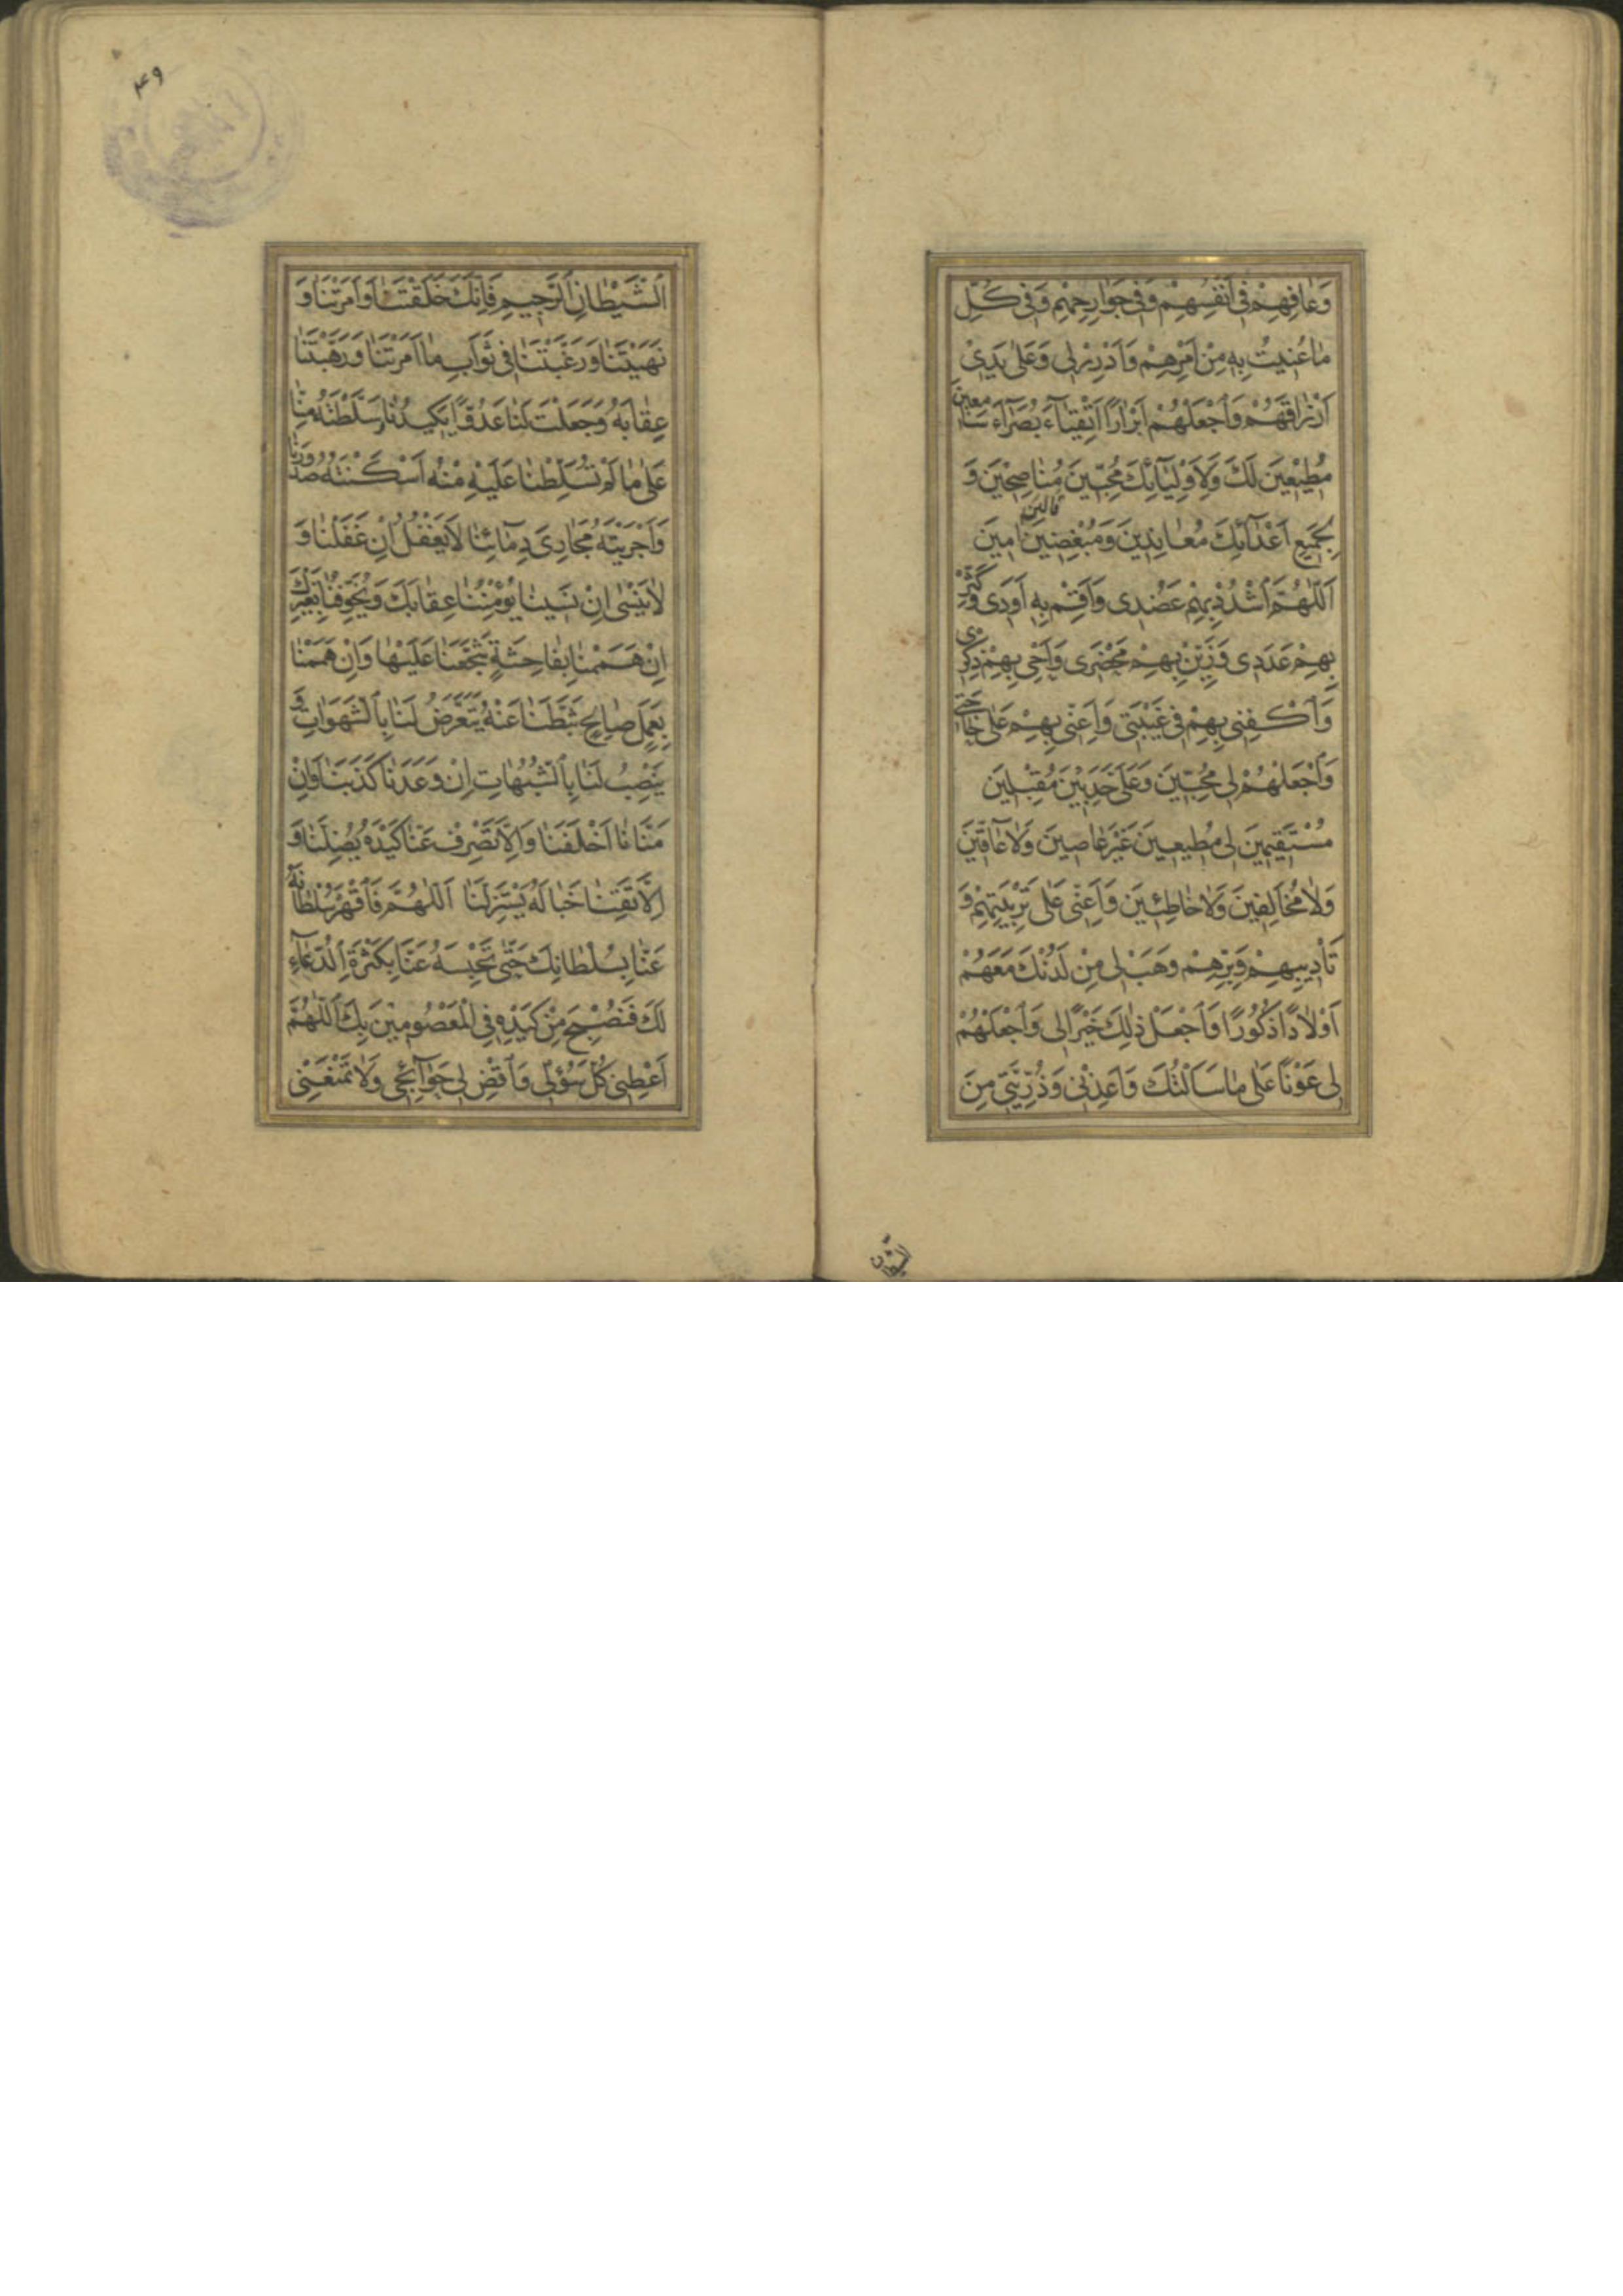 وَعَافِهِمْ فِى اَنْفُسِهِمْ وَفِى جَوَارِحِهِمْ وَفِى كُلِّ
مَا عُنِيتُ بِهِ مِنْ اَمْرِهِمْ وَاَدْرِرْ لِى وَعَلَى يَدِىْ
اَرْزَاقَهُمْ وَاجْعَلْهُمْ اَبْرَارًا اَتْقِيَاءَ بُصَرَاءَ سَامِعِينَ
مُطِيْعِينَ لَكَ وَلِاَوْلِيَائِكَ مُحِبِّينَ مُنَاصِحِيْنَ وَ
لِجَمِيْعِ اَعْدَائِكَ مُعَانِدِيْنَ وَمُبْغِضِيْنَ امِيْنَ
اَللّٰهُمَّ اشْدُدْ بِهِمْ عَضُدِى وَاَقِمْ بِهِ اَوَدِى وَكَثِّرْ
بِهِمْ عَدَدِى وَزَيِّنْ بِهِمْ مَحْضَرِى وَاَحْىِ بِهِمْ ذِكْرِى
وَاكْفِنِى بِهِمْ فِى غَيْبَتِى وَاَعِنِّى بِهِمْ عَلَى حَاجَتِى
وَاجْعَلْهُمْ لِى مُحِبِّينَ وَعَلَىَّ حَدِبِيْنَ مُقْبِلِينَ
مُسْتَقِيمِينَ لِى مُطِيعِيْنَ غَيْرَ عَاصِيْنَ وَلَا عَاقِّيْنَ
وَلَا مُخَالِفِيْنَ وَلَا خَاطِئِيْنَ وَاَعِنِّى عَلَى تَرْبِيَتِهِمْ وَ
تَأْدِيبِهِمْ وَبِرِّهِمْ وَهَبْ لِى مِنْ لَدُنْكَ مَعَهُمْ
اَوْلَادًا ذُكُورًا وَاجْعَلْ ذٰلِكَ خَيْرًا لِى وَاجْعَلْهُمْ
لِى عَوْنًا عَلَى مَا سَاَلْتُكَ وَاَعِذْنِى وَذُرِّيَّتِى مِنَ
الشيطان
۴۹
الشَّيْطَانِ الرَّجِيمِ فَاِنَّكَ خَلَقْتَنَا وَاَمَرْتَنَا وَ
نَهَيْتَنَا وَرَغَّبْتَنَا فِى ثَوَابِ مَا اَمَرْتَنَا وَرَهَّبْتَنَا
عِقَابَهُ وَجَعَلْتَ لَنَا عَدُوًّا يَكِيدُنَا سَلَّطْتَهُ مِنَّا
عَلَى مَا لَمْ تُسَلِّطْنَا عَلَيْهِ مِنْهُ اَسْكَنْتَهُ صُدُورَنَا
وَاَجْرَيْتَهُ مَجَارِىَ دِمَائِنَا لَا يَغْفُلُ اِنْ غَفَلْنَا وَ
لَا يَنْسَى اِنْ نَسِيْنَا يُؤْمِنُنَا عِقَابَكَ وَيُخَوِّفُنَا بِغَيْرِكَ
اِنْ هَمَمْنَا بِفَاحِشَةٍ شَجَّعَنَا عَلَيْهَا وَاِنْ هَمَمْنَا
بِعَمَلٍ صَالِحٍ ثَبَّطَنَا عَنْهُ يَتَعَرَّضُ لَنَا بِالشَّهَوَاتِ وَ
يَنْصِبُ لَنَا بِالشُّبُهَاتِ اِنْ وَعَدَنَا كَذَبَنَا وَاِنْ
مَنَّانَا اَخْلَفَنَا وَاِلَّا تَصْرِفْ عَنَّا كَيْدَهُ يُضِلَّنَا وَ
اِلَّا تَقِنَا خَبَالَهُ يَسْتَزِلَّنَا اَللّٰهُمَّ فَاقْهَرْ سُلْطَانَهُ
عَنَّا بِسُلْطَانِكَ حَتّٰى تَحْبِسَهُ عَنَّا بِكَثْرَةِ الدُّعَاءِ
لَكَ فَنُصْبِحَ مِنْ كَيْدِهِ فِى الْمَعْصُومِيْنَ بِكَ اَللّٰهُمَّ
اَعْطِنِى كُلَّ سُؤْلِى وَاقْضِ لِى حَوَائِجِى وَلَا تَمْنَعْنِى